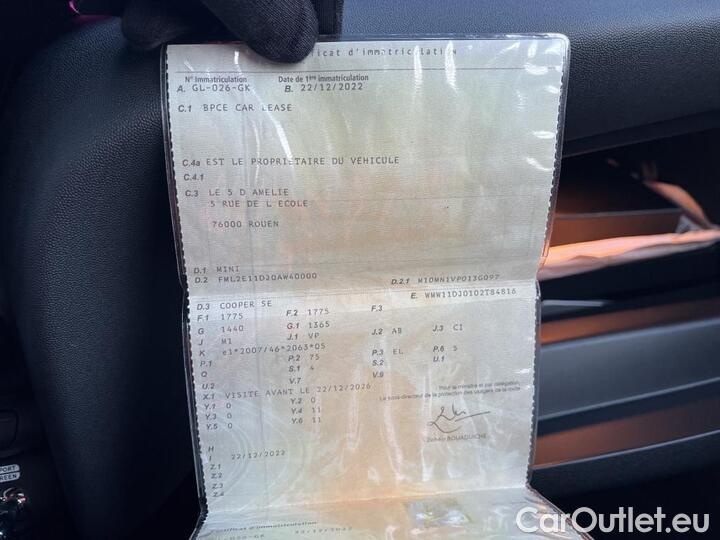 d'immatriculation
N° Immatriculation Date de 1ère immatriculation
A. GL-026-GK B. 22/12/2022
C.1 BPCE CAR LEASE
C.4a EST LE PROPRIETAIRE DU VEHICULE
C.4.1
C.3 LE 5 D AMELIE
5 RUE DE L ECOLE
76000 ROUEN
D.1 MINI
D.2 FML2E11DJ0AW40000 D.2.1 M10MN1VP013G097
D.3 COOPER SE E. WMW11DJ0102T84816
F.1 1775 F.2 1775 F.3
G 1440 G.1 1365
J M1 J.1 VP J.2 AB J.3 CI
K e1*2007/46*2063*05
P.1 P.2 75 P.3 EL P.6 5
Q S.1 4 S.2 U.1
U.2 V.7 V.9
X.1 VISITE AVANT LE 22/12/2026
Y.1 0 Y.2 0
Y.3 0 Y.4 11
Y.5 0 Y.6 11
Pour le ministre et par délégation,
Le sous-directeur de la protection des usagers de la route
BOUAOUICHE
H
I 22/12/2022
Z.1
Z.2
Z.3
Z.4
d'immatriculation
22/12/2022
PORT
CarOutlet.eu